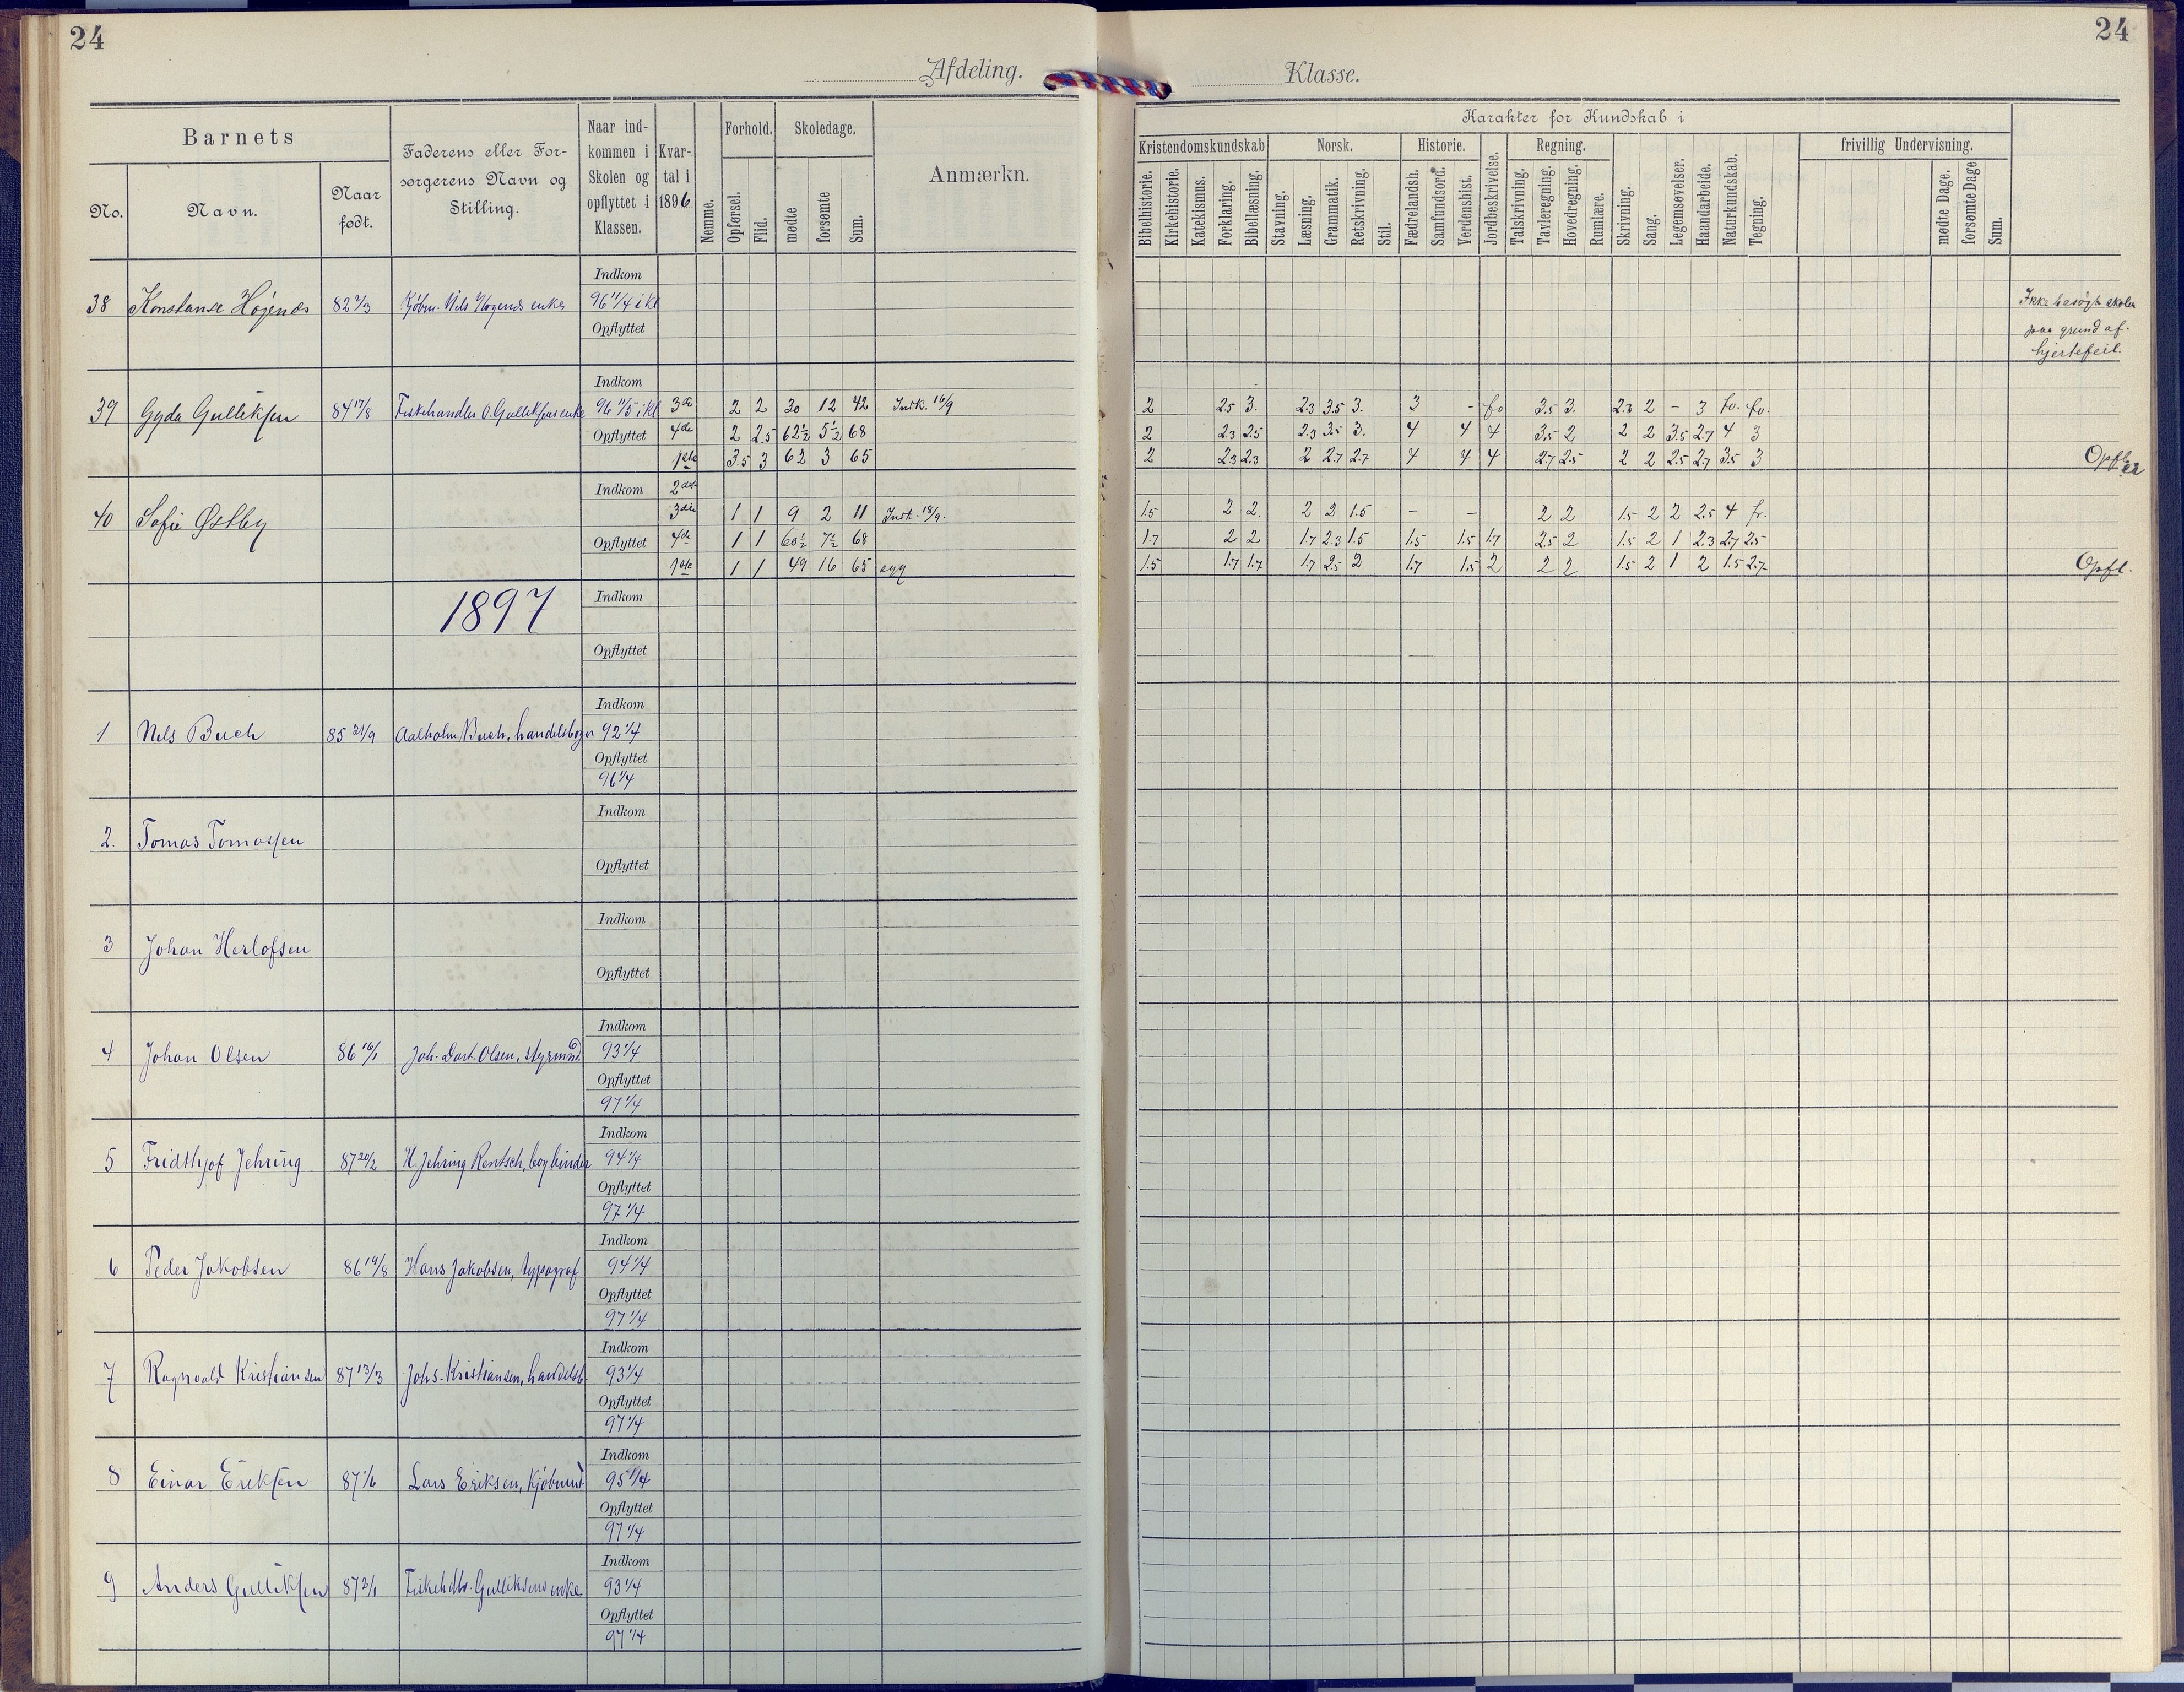 24
24
Afdeling.
Klasse.
Barnets
No.
Navn.
Naar født.
Faderens eller Forsørgerens Navn og Stilling.
Naar indkommen i Skolen og opflyttet i Klassen.
Kvartal i 1896
Nemme.
Forhold.
Opførsel.
Flid.
Skoledage.
mødte
forsømte
Sum.
Anmærkn.
Karakter for Kundskab i
Kristendomskundskab
Bibelhistorie.
Kirkehistorie.
Katekismus.
Forklaring.
Bibellæsning.
Norsk.
Stavning.
Læsning.
Grammatik.
Retskrivning.
Stil.
Historie.
Fædrelandsh.
Samfundsord.
Verdenshist.
Jordbeskrivelse.
Regning.
Talskrivning.
Tavleregning.
Hovedregning.
Rumlære.
Skrivning.
Sang.
Legemsøvelser.
Haandarbeide.
Naturkundskab.
Tegning.
frivillig Undervisning.
mødte Dage.
forsømte Dage
Sum.
Indkom
38 Konstanse Høgenæs 82 2/3 Kjøbm. Nils Høgenes enke 96 11/4 i kl
Opflyttet
Ikke besøgt skolen
paa grund af
hjertefeil.
Indkom
39 Gyda Gulliksen 84 17/8 Fiskehandler O. Gulliksens enke 96 11/5 i kl 3die 2 2 30 12 42 Indk. 16/9 2 2.5 3. 2.3 3.5 3. 3 - fo 3.5 3. 2.3 2 - 3 fo. fo.
Opflyttet 4de 2 2.5 62½ 5½ 68 2 2.3 2.5 2.3 3.5 3. 4 4 4 3.5 2 2 2 3.5 2.7 4 3
1ste 3.5 3 62 3 65 2 2.3 2.3 2 2.7 2.7 4 4 4 2.7 2.5 2 2 2.5 2.7 3.5 3 Opfl.
Indkom 2det
40 Sofie Østby 3die 1 1 9 2 11 Indk. 18/9. 1.5 2 2. 2 2 1.5 - - 2 2 1.5 2 2 2.5 4 fr.
Opflyttet 4de 1 1 60½ 7½ 68 1.7 2 2 1.7 2.3 1.5 1.5 1.5 1.7 2.5 2 1.5 2 1 2.3 2.7 2.5
1ste 1 1 49 16 65 syg 1.5 1.7 1.7 1.7 2.5 2 1.7 1.5 2 2 2 1.5 2 1 2 1.5 2.7 Opfl.
1897
Indkom
Opflyttet
Indkom
1 Nils Buch 85 21/9 Aalholm Buch, handelsborger 92 1/4
Opflyttet
96 1/4
Indkom
2. Tomas Tomassen
Opflyttet
Indkom
3 Johan Herlofsen
Opflyttet
Indkom
4 Johan Olsen 86 16/1 Joh. Olsen, styrmand 93 1/4
Opflyttet
97 1/4
Indkom
5 Fridthjof Jehring 87 20/2 H Jehring Rentsch, bogbinder 94 1/4
Opflyttet
97 1/4
Indkom
6 Peder Jakobsen 86 19/8 Hans Jakobsen, typograf 94 1/4
Opflyttet
97 1/4
Indkom
7 Ragnvald Kristiansen 87 13/3 Johs. Kristiansen, handelsb. 93 1/4
Opflyttet
97 1/4
Indkom
8 Einar Eriksen 87 1/6 Lars Eriksen, Kjøbmd. 95 1/4
Opflyttet
97 1/4
Indkom
9 Anders Gulliksen 87 2/1 Fiskehdlr. Gulliksens enke 93 1/4
Opflyttet
97 1/4